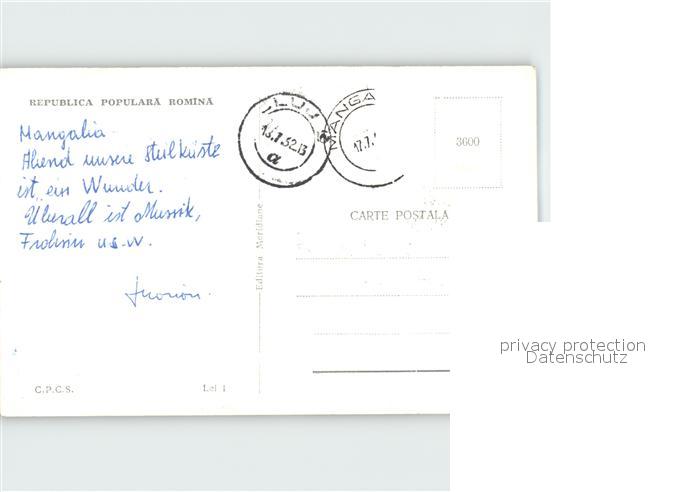 REPUBLICA POPULARĂ ROMÎNĂ
Mangalia
Abend unsere Steilküste
ist ein Wunder.
Überall ist Mussik,
Frohsin u.s.w.
C.P.C.S.
Lei 1
Editura Meridiane
LUJ
α
MANGA
17.7.
3600
CARTE POȘTALA
privacy protection
Datenschutz